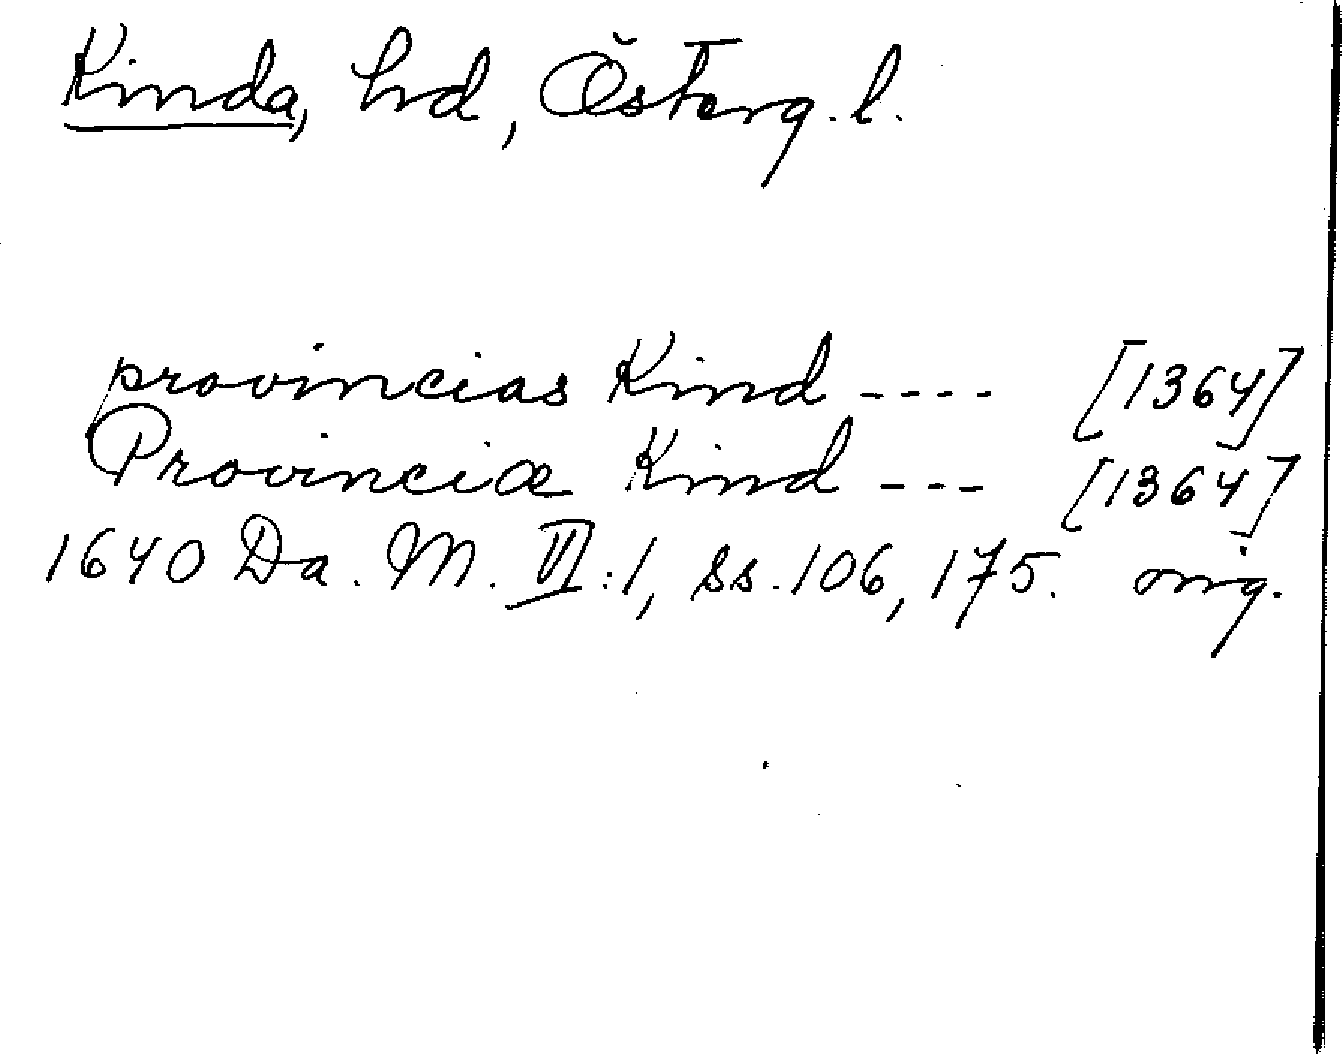 Kinda, hd, Österg. l.
provincias Kind ---- [1364]
Provinciæ Kind --- [1364]
1640 Da. M. VI:1, ss. 106, 175. orig.